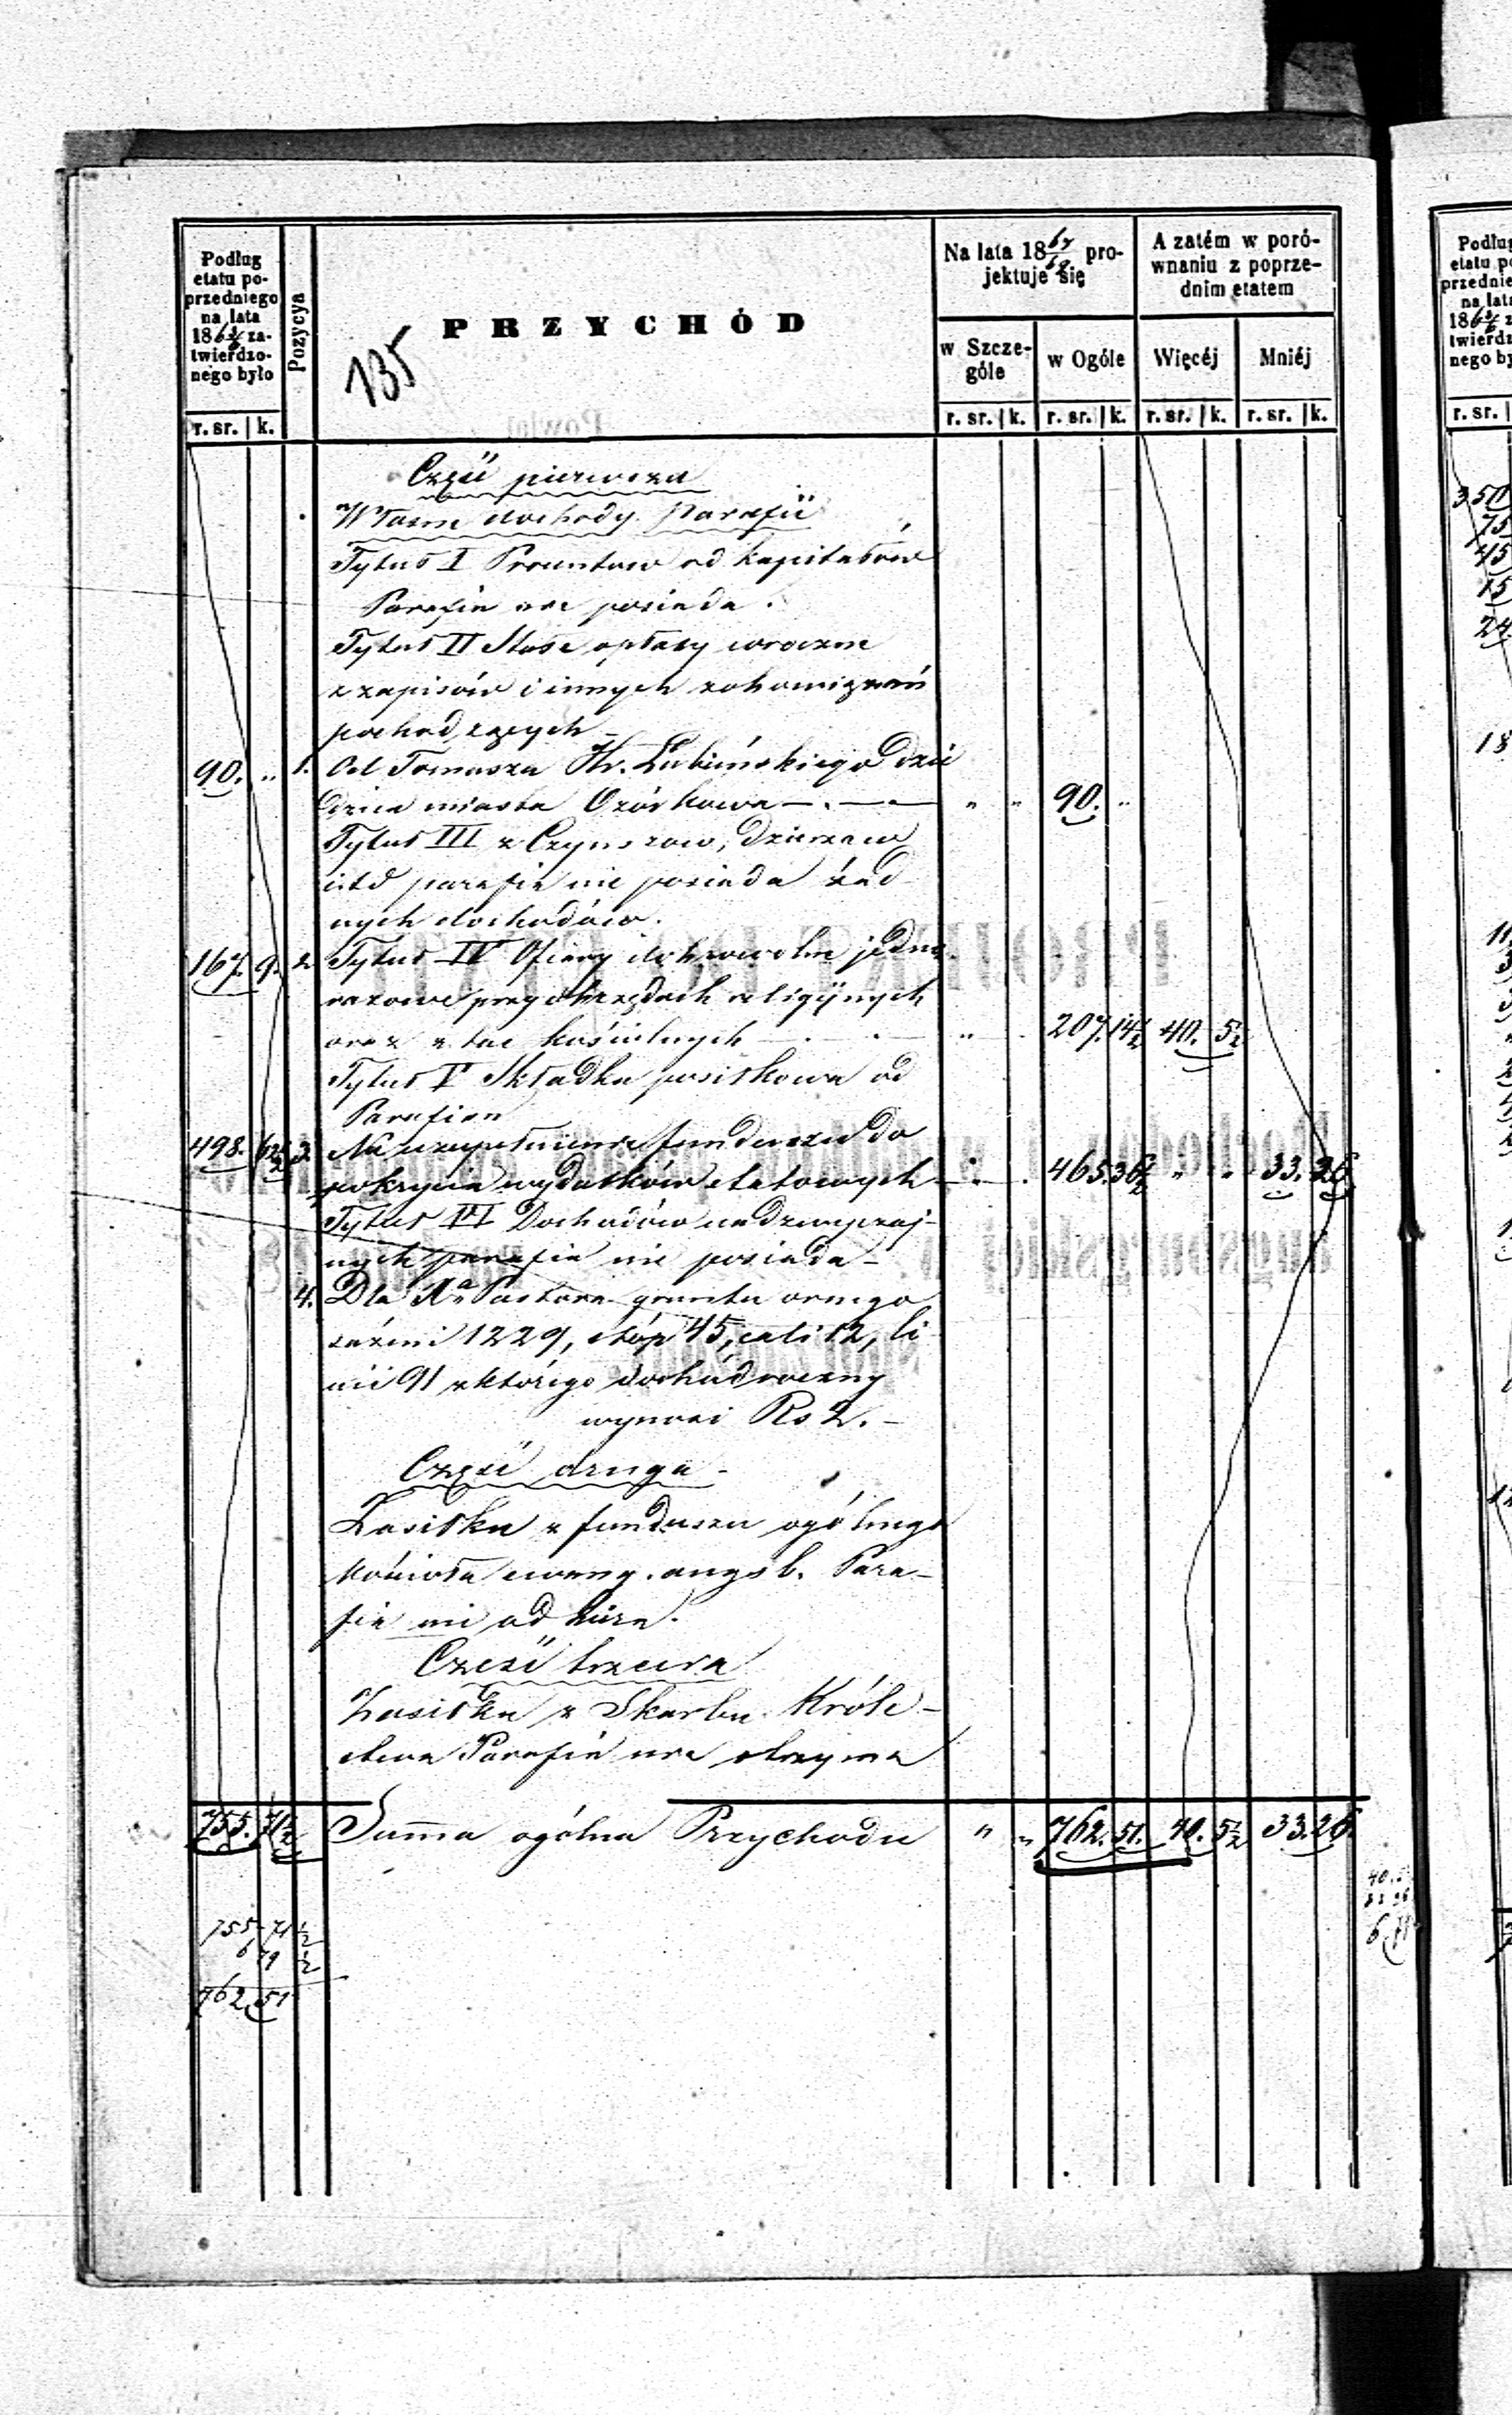 Podług
etatu po-
przedniego
na lata
186 za-
twierdzo-
nego było
r. sr. k.
Pozycya
PRZYCHÓD
135
Na lata 18 67/69 pro-
jektuje się
w Szcze-
góle
r. sr. k.
w Ogóle
r. sr. k.
A zatém w poró-
wnaniu z poprze-
dnim etatem
Więcéj
r. sr. k.
Mniéj
r. sr. k.
Część pierwsza
Własne dochody Parafii
Tytuł I Procentów od kapitałów
Parafia nie posiada.
Tytuł II Stałe opłaty coroczne
z zapisów i innych zobowiązań
pochodzących
90. „ 1. Od Tomasza Hr. Łubieńskiego Dzie
dzica miasta Ozorkowa „ „ 90. „
Tytuł III z Czynszów, Dzierżaw
itd parafia nie posiada żad
nych dochodów.
167. 9. 2. Tytuł IV Ofiary dobrowolne jedno
razowe przy obrzędach religijnych
oraz z tac kościelnych „ 207. 14½ 40. 5½
Tytuł V Składka posiłkowa od
Parafian
498. 62½ 3. Na uzupełnienie funduszu do
pokrycia wydatków etatowych 465. 36½ „ „ 33. 26
Tytuł VI Dochodów nadzwyczaj-
nych parafia nie posiada
4. Dla Xa Pastora gruntu ornego
sążeni 1229, stóp 45, cali 12, li
nii 91 z którego dochód roczny
wynosi Rs 2.
Część druga
Zasiłku z funduszu ogólnego
kościoła ewang. augsb. Para-
fia nie odbiera.
Część trzecia
Zasiłku z Skarbu Króle-
stwa Parafia nie otrzyma
755. 71½ Summa ogólna Przychodu „ „ 762. 51. 40. 5½ 33. 26.
755 71½
6 79½
762. 51